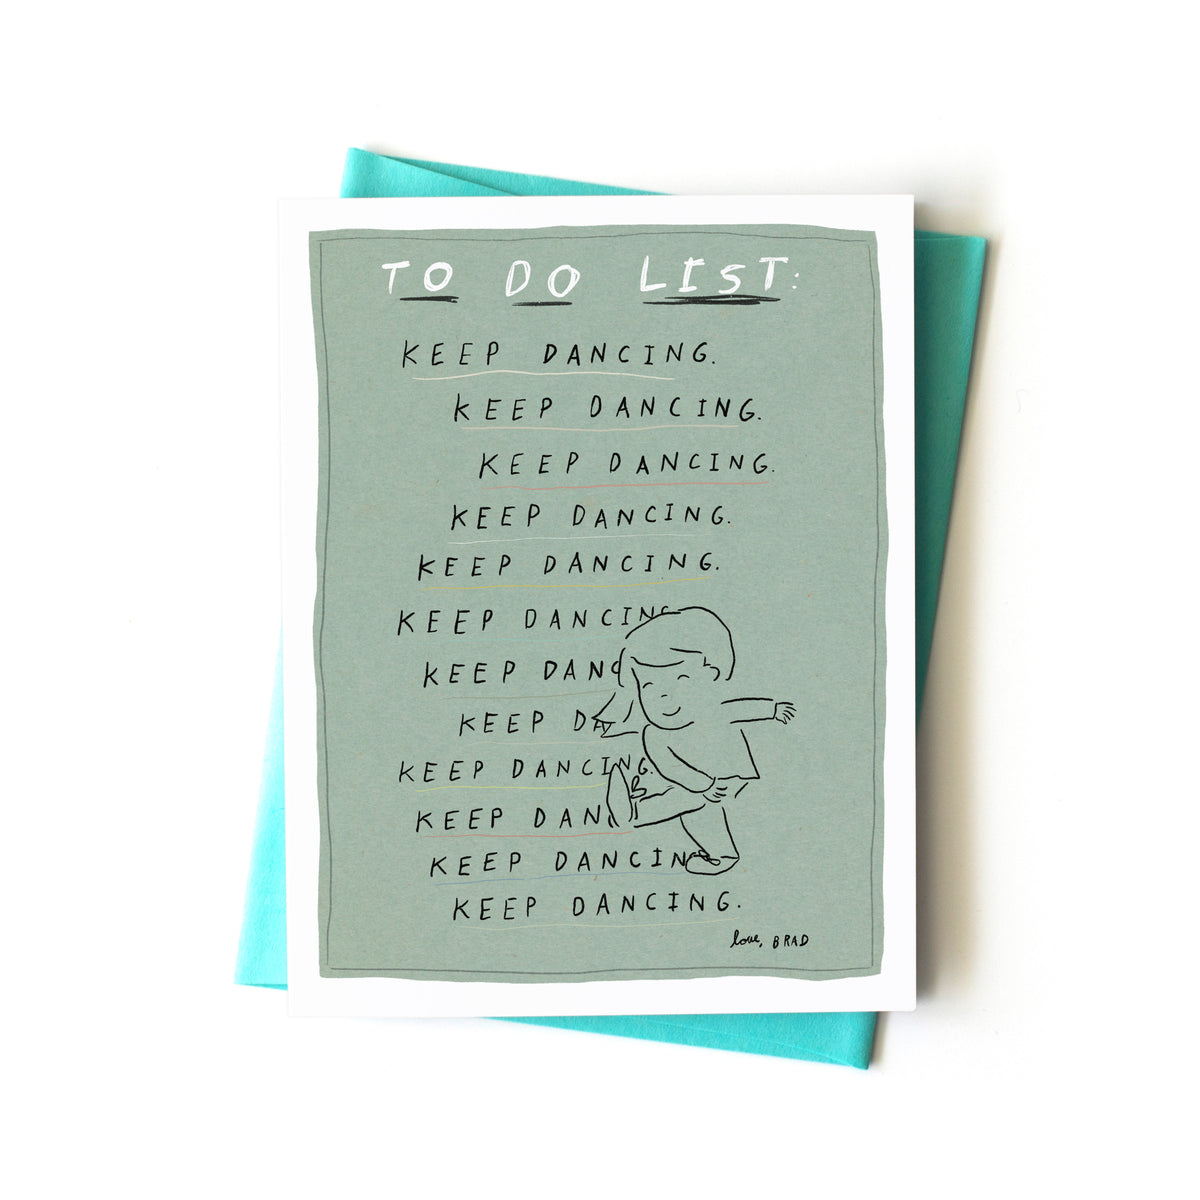 TO DO LIST:
KEEP DANCING.
KEEP DANCING.
KEEP DANCING.
KEEP DANCING.
KEEP DANCING.
KEEP DANCING
KEEP DANC
KEEP DA
KEEP DANCING.
KEEP DAN
KEEP DANCIN
KEEP DANCING.
love, BRAD